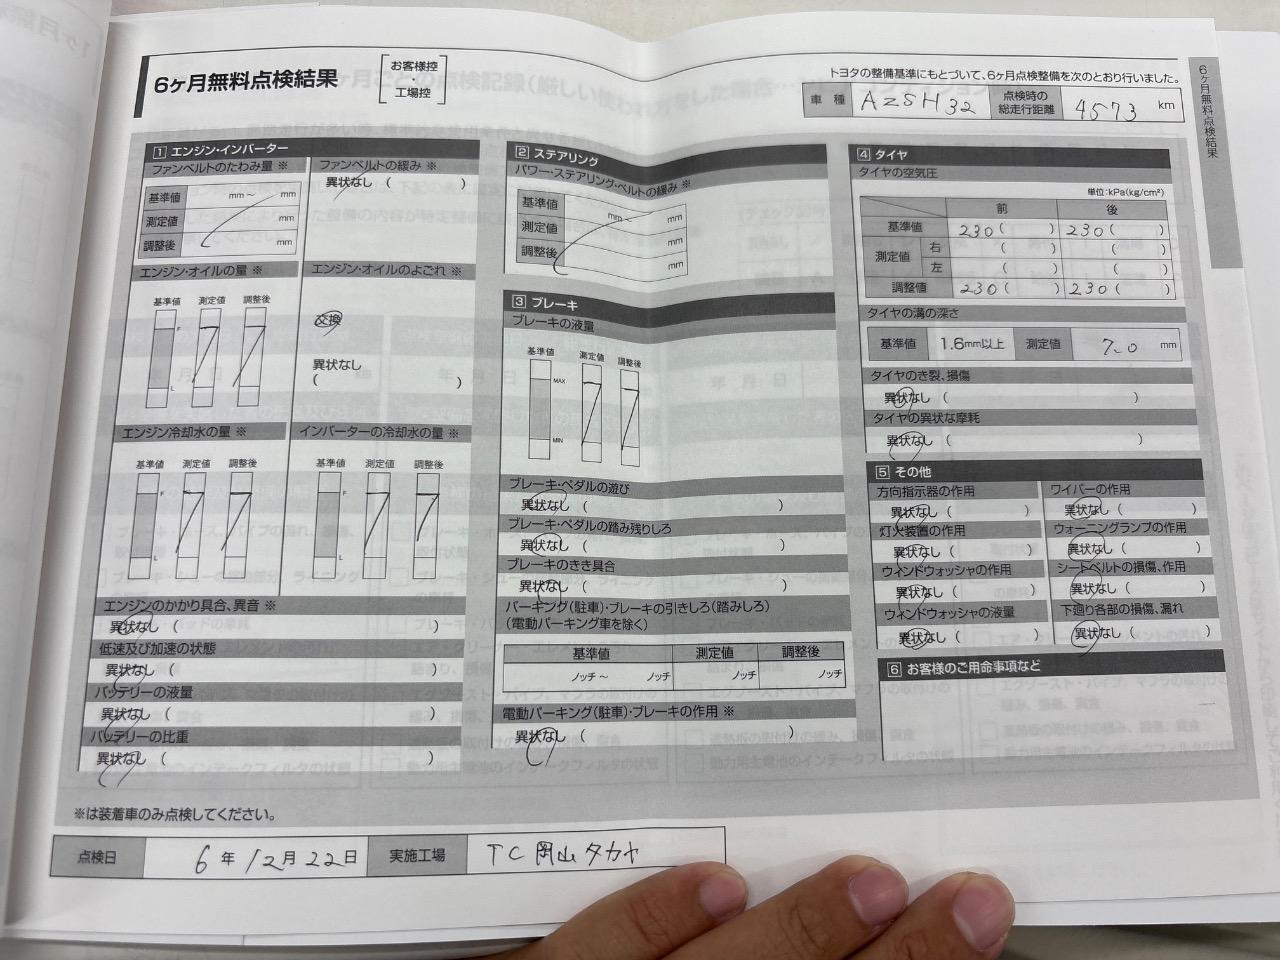 6ヶ月無料点検結果
お客様控
・
工場控
トヨタの整備基準にもとづいて、6ヶ月点検整備を次のとおり行いました。
車種 AZSH32 点検時の総走行距離 4573 km
6ヶ月無料点検結果
1 エンジン・インバーター
ファンベルトのたわみ量 ※
基準値 mm〜 mm
測定値
調整後 mm
ファンベルトの緩み ※
異状なし ( )
エンジン・オイルの量 ※
基準値 測定値 調整後
F
L
エンジン・オイルのよごれ ※
交換
異状なし
( )
エンジン冷却水の量 ※
基準値 測定値 調整後
F
L
インバーターの冷却水の量 ※
基準値 測定値 調整後
F
L
エンジンのかかり具合、異音 ※
異状なし ( )
低速及び加速の状態
異状なし ( )
バッテリーの液量
異状なし ( )
バッテリーの比重
異状なし ( )
2 ステアリング
パワー・ステアリング・ベルトの緩み ※
基準値 mm〜 mm
測定値 mm
調整後 mm
3 ブレーキ
ブレーキの液量
基準値 測定値 調整後
MAX
MIN
ブレーキ・ペダルの遊び
異状なし ( )
ブレーキ・ペダルの踏み残りしろ
異状なし ( )
ブレーキのきき具合
異状なし ( )
パーキング(駐車)・ブレーキの引きしろ(踏みしろ)
(電動パーキング車を除く)
基準値 測定値 調整後
ノッチ〜 ノッチ ノッチ ノッチ
電動パーキング(駐車)・ブレーキの作用 ※
異状なし ( )
4 タイヤ
タイヤの空気圧
単位:kPa(kg/cm²)
前 後
基準値 230( ) 230( )
測定値 右 ( ) ( )
左 ( ) ( )
調整値 230( ) 230( )
タイヤの溝の深さ
基準値 1.6mm以上 測定値 7.0 mm
タイヤのき裂、損傷
異状なし ( )
タイヤの異状な摩耗
異状なし ( )
5 その他
方向指示器の作用
異状なし ( )
灯火装置の作用
異状なし ( )
ウィンドウォッシャの作用
異状なし ( )
ウィンドウォッシャの液量
異状なし ( )
ワイパーの作用
異状なし ( )
ウォーニングランプの作用
異状なし ( )
シートベルトの損傷、作用
異状なし ( )
下廻り各部の損傷、漏れ
異状なし ( )
6 お客様のご用命事項など
※は装着車のみ点検してください。
点検日 6年12月22日 実施工場 TC岡山タカヤ